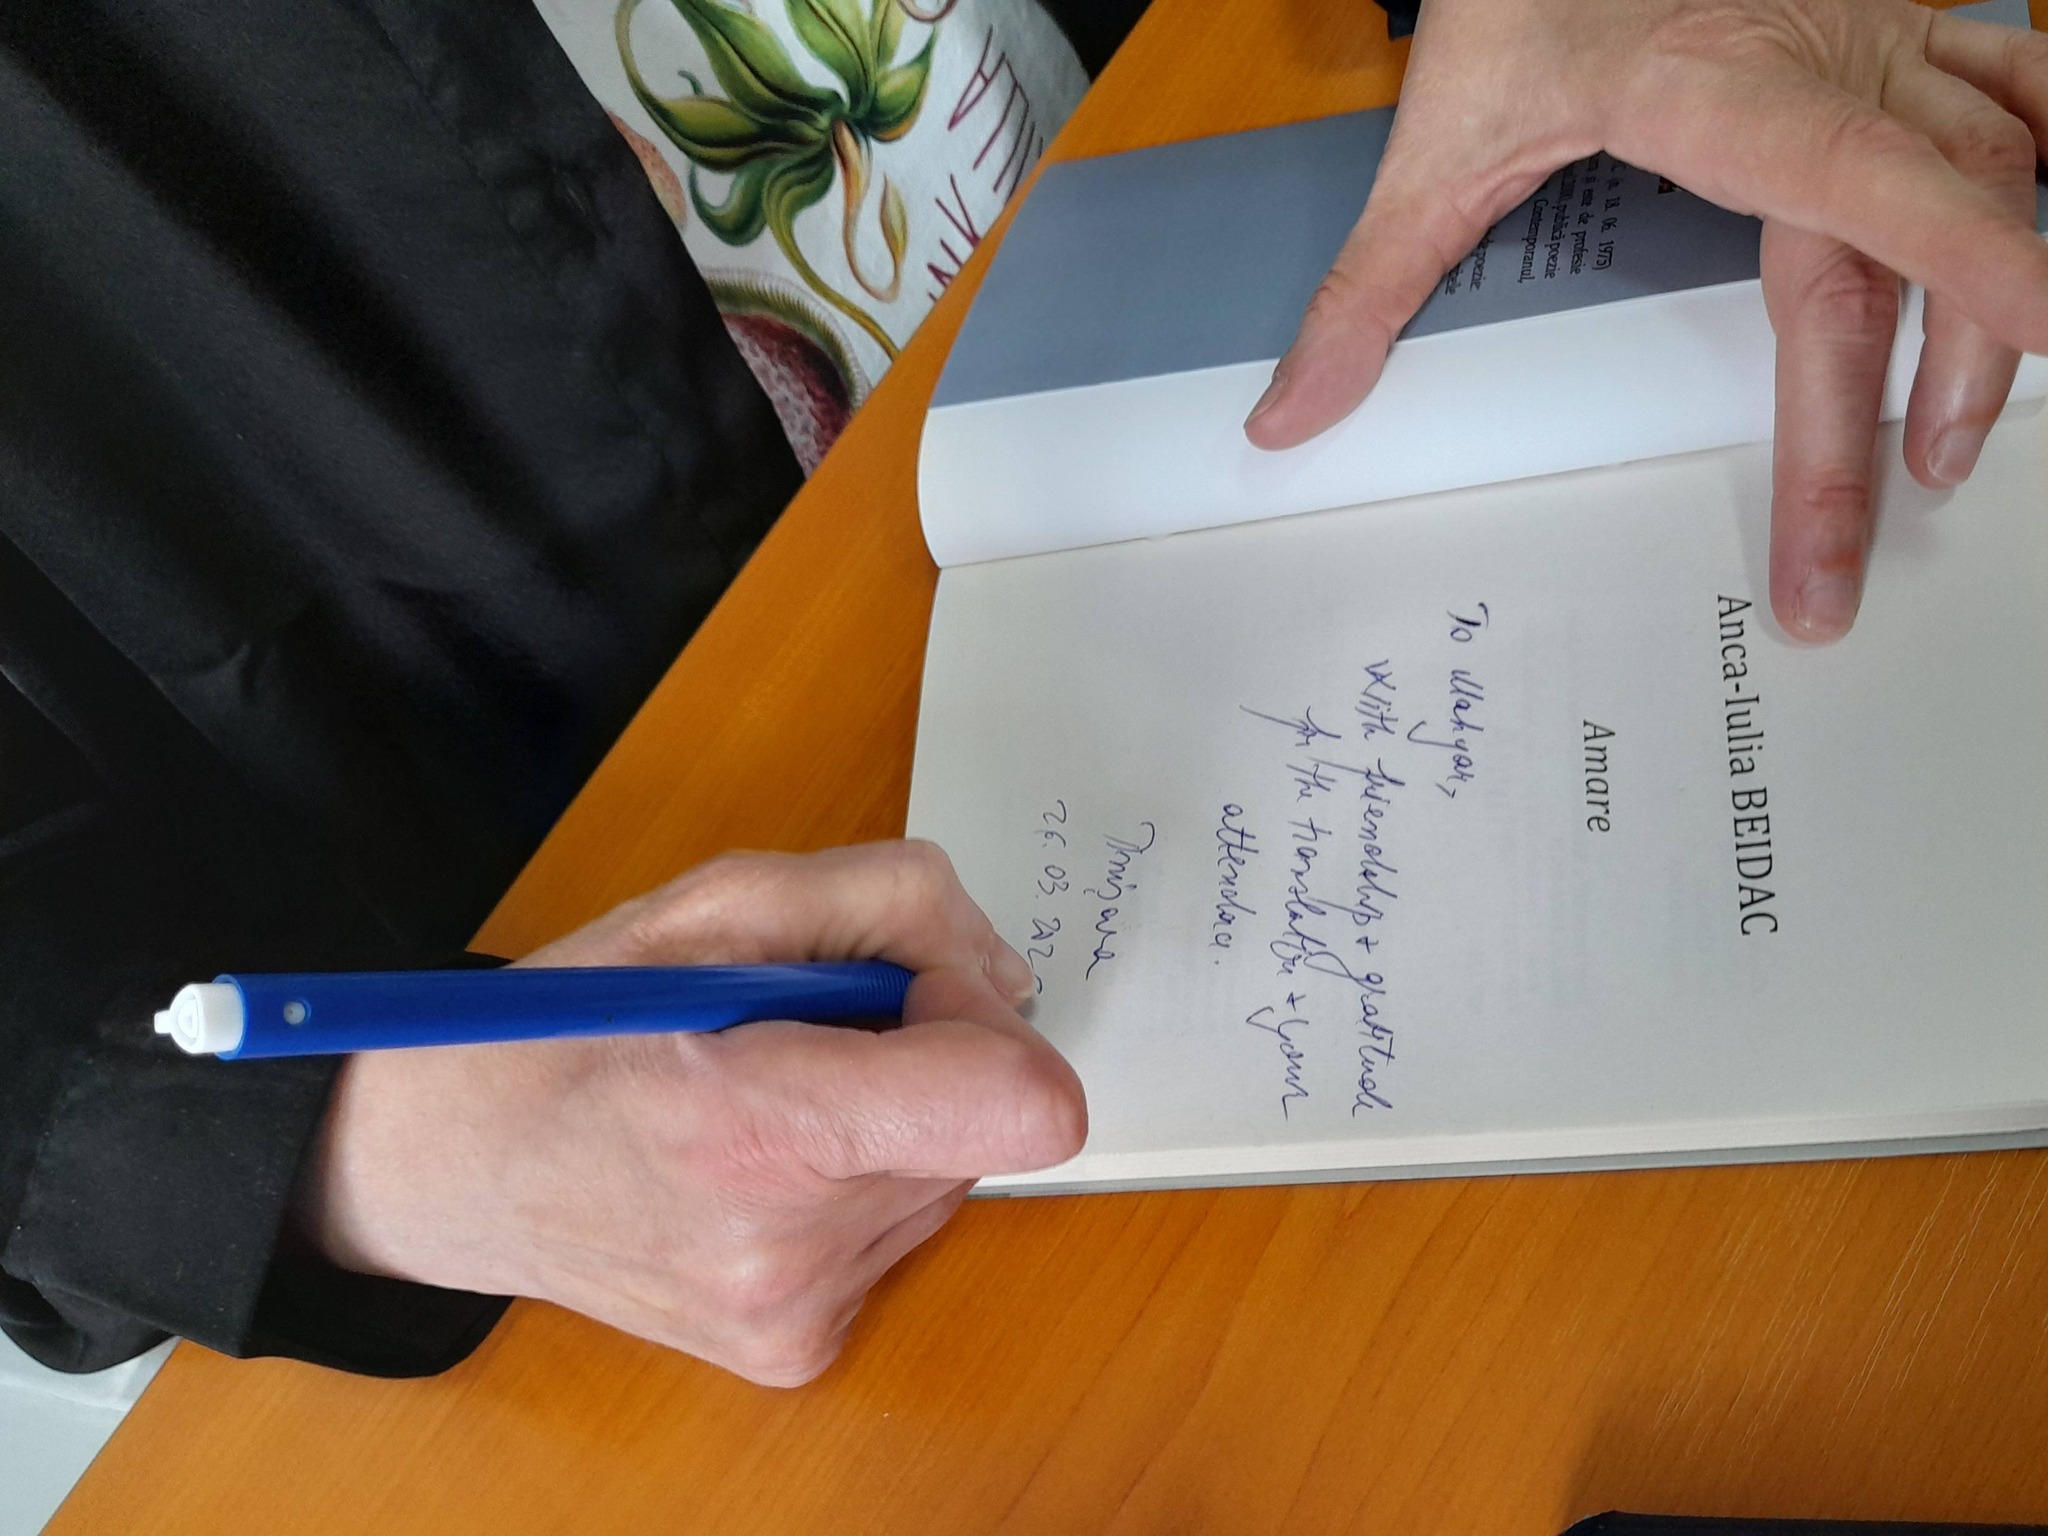 Anca-Iulia BEIDAC
Amare
To Mahyar,
With friendship + gratitude
for the translation + your
attendance.
Timișoara
26. 03. 202
(n. 18. 06. 1975)
și este de profesie
publică poezie
Contemporanul,
de poezie: